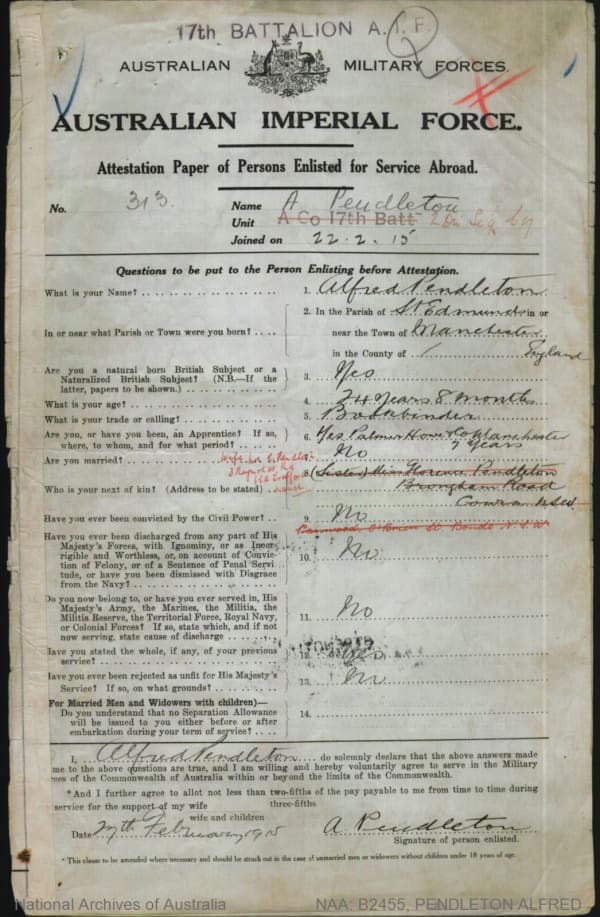 17th BATTALION A.I.F.
2
AUSTRALIAN MILITARY FORCES.
AUSTRALIAN IMPERIAL FORCE.
Attestation Paper of Persons Enlisted for Service Abroad.
No. 313 Name A Pendleton
Unit A Co 17th Batt 2 Div Sig Coy
Joined on 22.2.15
Questions to be put to the Person Enlisting before Attestation.
What is your Name? 1. Alfred Pendleton
In or near what Parish or Town were you born? 2. In the Parish of St Edmund in or
near the Town of Manchester
in the County of / England
Are you a natural born British Subject or a
Naturalized British Subject? (N.B.—If the
latter, papers to be shown.) 3. Yes
What is your age? 4. 24 years 8 months
What is your trade or calling? 5. Bookbinder
Are you, or have you been, an Apprentice? If so,
where, to whom, and for what period? 6. Yes Palmer Howe Co Manchester
7 years
Are you married? No
Who is your next of kin? (Address to be stated) 8. (Sister) Miss Florence Pendleton
Brougham Road
Cowra NSW
O'Brien St Bondi N.S.W
Have you ever been convicted by the Civil Power? 9. No
Have you ever been discharged from any part of His
Majesty's Forces, with Ignominy, or as Incor-
rigible and Worthless, or, on account of Convic-
tion of Felony, or of a Sentence of Penal Servi-
tude, or have you been dismissed with Disgrace
from the Navy? 10. No
Do you now belong to, or have you ever served in, His
Majesty's Army, the Marines, the Militia, the
Militia Reserve, the Territorial Force, Royal Navy,
or Colonial Forces? If so, state which, and if not
now serving, state cause of discharge 11. No
Have you stated the whole, if any, of your previous
service? 12. Yes
Have you ever been rejected as unfit for His Majesty's
Service? If so, on what grounds? 13. No
For Married Men and Widowers with children)—
Do you understand that no Separation Allowance
will be issued to you either before or after
embarkation during your term of service? 14.
I, Alfred Pendleton do solemnly declare that the above answers made
me to the above questions are true, and I am willing and hereby voluntarily agree to serve in the Military
ces of the Commonwealth of Australia within or beyond the limits of the Commonwealth.
*And I further agree to allot not less than two-fifths of the pay payable to me from time to time during
three-fifths
service for the support of my wife
wife and children
Date 27th February 1915 A Pendleton
Signature of person enlisted.
* This clause to be amended where necessary and should be struck out in the case of unmarried men or widowers without children under 18 years of age.
National Archives of Australia NAA: B2455, PENDLETON ALFRED